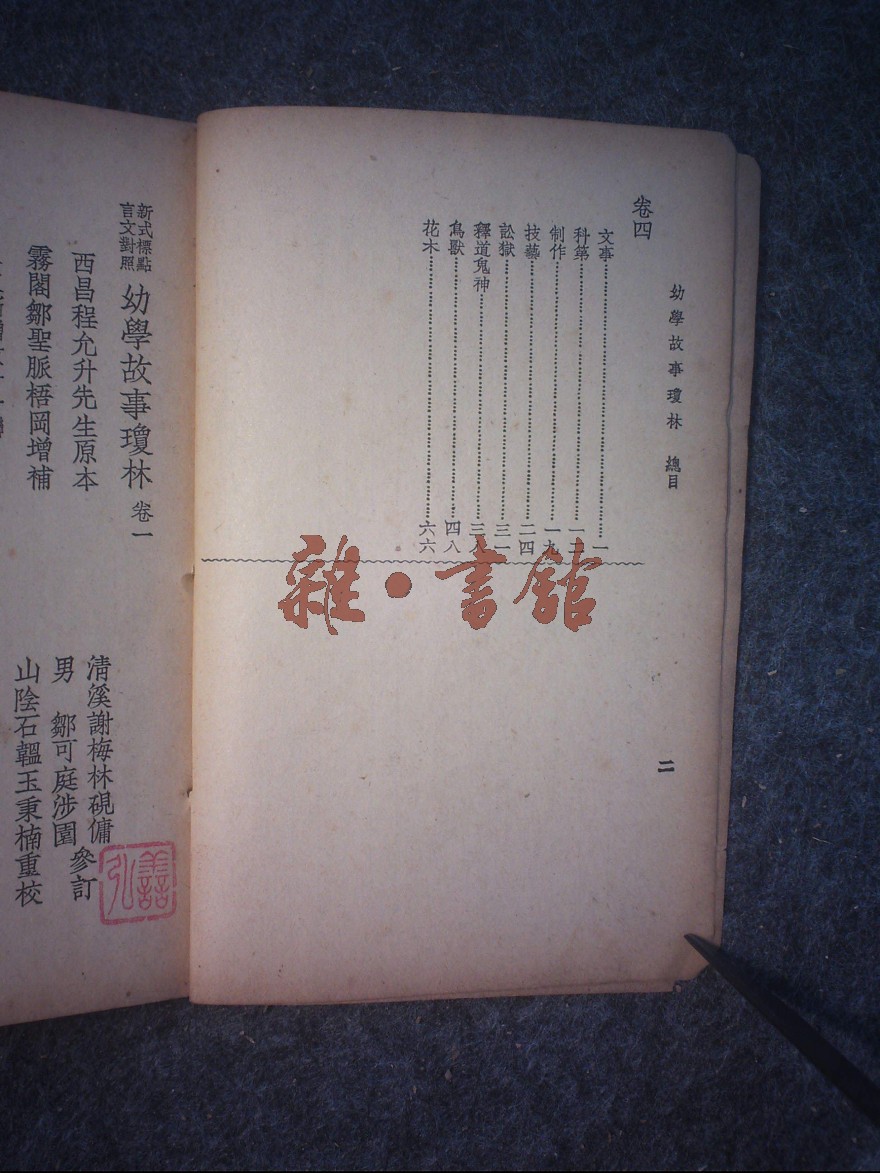 幼學故事瓊林 總目
二
卷四
文事……一
科第……一二
制作……一九
技藝……二四
訟獄……三一
釋道鬼神……三八
鳥獸……四八
花木……六六
雜·書館
新式標點
言文對照
幼學故事瓊林 卷一
西昌程允升先生原本
霧閣鄒聖脈梧岡增補
清溪謝梅林硯傭
男 鄒可庭涉園
參訂
山陰石韞玉秉楠重校